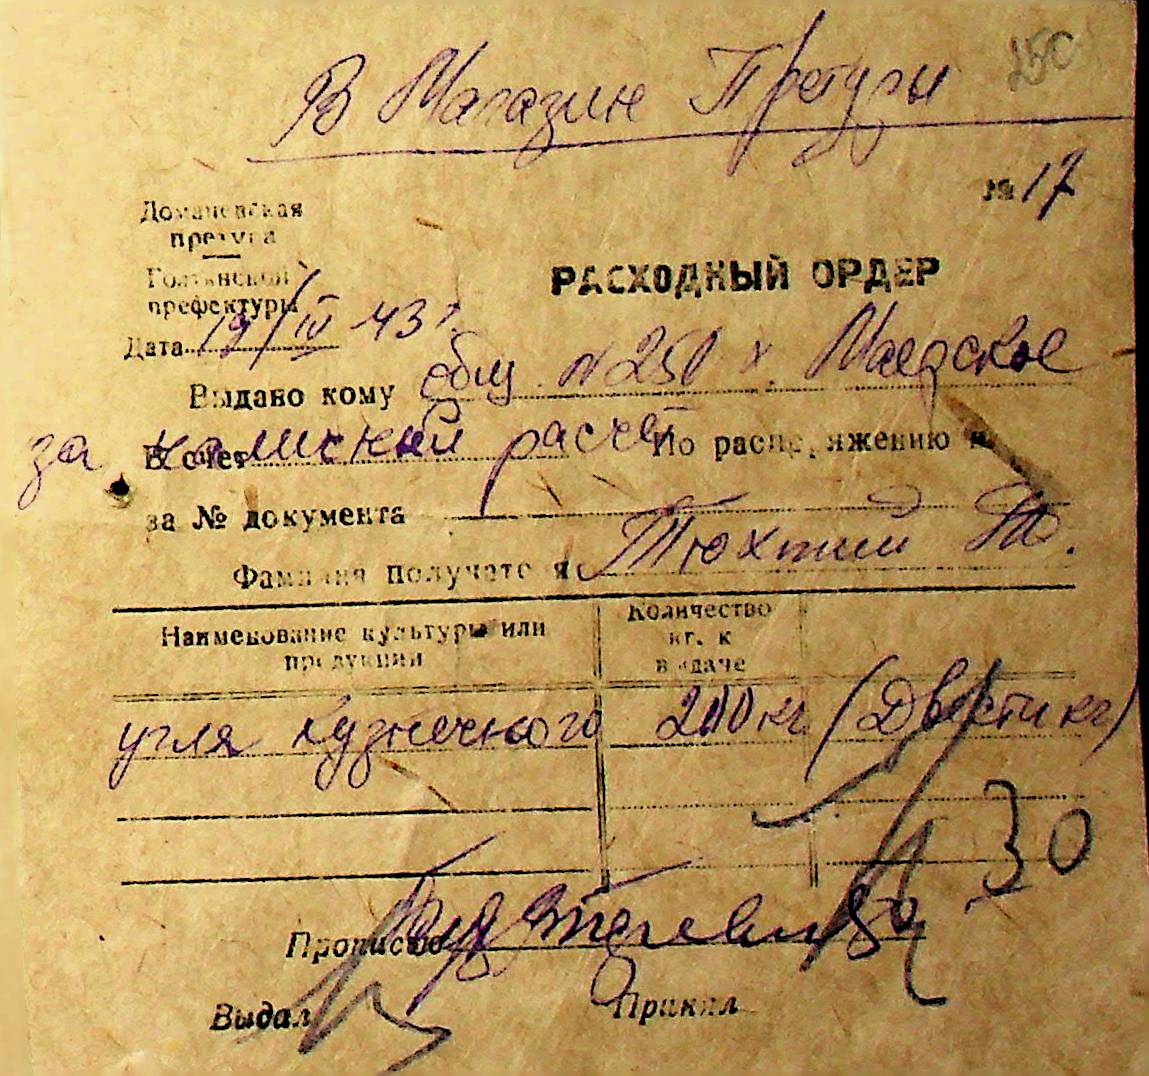 250
В Магазин Претуры
№ 17
Доманевская
претура
Голтянской
префектуры
РАСХОДНЫЙ ОРДЕР
Дата 19/IV 43 г.
Выдано кому общ. N 250 х. Маедское
за наличный расчет
В счет По распоряжению №
за № документа
Фамилия получателя Тюхтий
Наименование культуры или продукции
Количество кг. к выдаче
угля кузнечного 200 кг (Двести кг)
30
Прописью
Выдал Принял